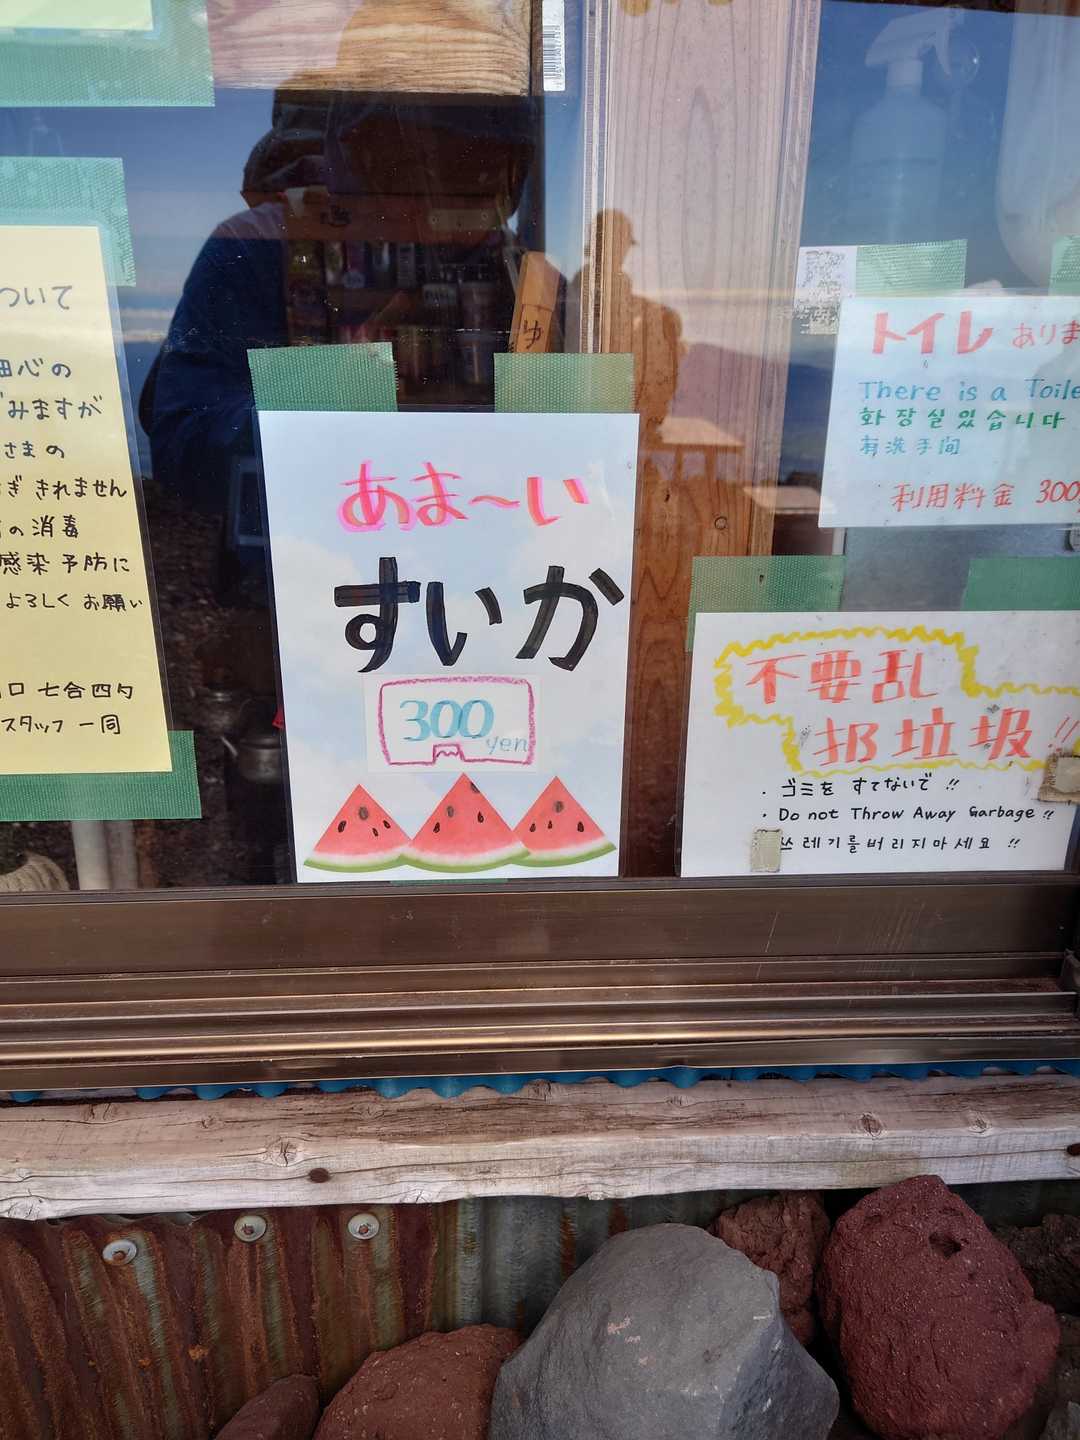 ついて
細心の
みますが
さまの
ぎきれません
の消毒
感染予防に
よろしくお願い
口七合四勺
スタッフ一同
ゆ
あま〜い
すいか
300
yen
トイレ あります
There is a Toile
화장실있습니다
有洗手间
利用料金 300
不要乱
扔垃圾!!
・ゴミを すてないで!!
・Do not Throw Away Garbage!!
쓰레기를버리지마세요 !!